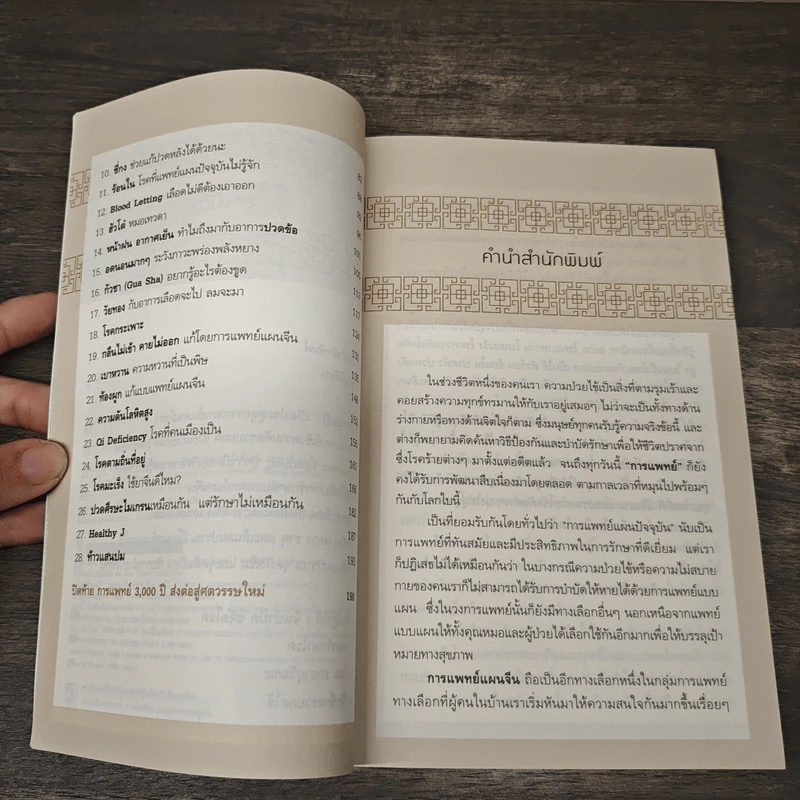 10. ชี่กง ช่วยแก้ปวดหลังได้ด้วยนะ
11. ร้อนใน โรคที่แพทย์แผนปัจจุบันไม่รู้จัก
12. Blood Letting เลือดไม่ดีต้องเอาออก
13. ฮัวโต๋ หมอเทวดา
14. หน้าฝน อากาศเย็น ทำไมถึงมากับอาการปวดข้อ
15. อดนอนมากๆ ระวังภาวะพร่องพลังหยาง
16. กัวซา (Gua Sha) อยากรู้อะไรต้องขูด
17. วัยทอง กับอาการเลือดจะไป ลมจะมา
18. โรคกระเพาะ
19. กลืนไม่เข้า คายไม่ออก แก้โดยการแพทย์แผนจีน
20. เบาหวาน ความหวานที่เป็นพิษ
21. ท้องผูก แก้แบบแพทย์แผนจีน
22. ความดันโลหิตสูง
23. Qi Deficiency โรคที่คนเมืองเป็น
24. โรคตามถิ่นที่อยู่ 161
25. โรคมะเร็ง ใช้ยาจีนดีไหม? 166
26. ปวดศีรษะไมเกรนเหมือนกัน แต่รักษาไม่เหมือนกัน 182
27. Healthy J 187
28. ห้าวแสนปม 193
ปิดท้าย การแพทย์ 3,000 ปี ส่งต่อสู่ศตวรรษใหม่ 198
คำนำสำนักพิมพ์
ในช่วงชีวิตหนึ่งของคนเรา ความป่วยไข้เป็นสิ่งที่ตามรุมเร้าและ
คอยสร้างความทุกข์ทรมานให้กับเราอยู่เสมอๆ ไม่ว่าจะเป็นทั้งทางด้าน
ร่างกายหรือทางด้านจิตใจก็ตาม ซึ่งมนุษย์ทุกคนรับรู้ความจริงข้อนี้ และ
ต่างก็พยายามคิดค้นหาวิธีป้องกันและบำบัดรักษาเพื่อให้ชีวิตปราศจาก
ซึ่งโรคร้ายต่างๆ มาตั้งแต่อดีตแล้ว จนถึงทุกวันนี้ “การแพทย์” ก็ยัง
คงได้รับการพัฒนาสืบเนื่องมาโดยตลอด ตามกาลเวลาที่หมุนไปพร้อมๆ
กันกับโลกใบนี้
เป็นที่ยอมรับกันโดยทั่วไปว่า “การแพทย์แผนปัจจุบัน” นับเป็น
การแพทย์ที่ทันสมัยและมีประสิทธิภาพในการรักษาที่ดีเยี่ยม แต่เรา
ก็ปฏิเสธไม่ได้เหมือนกันว่า ในบางกรณีความป่วยไข้หรือความไม่สบาย
กายของคนเราก็ไม่สามารถได้รับการบำบัดให้หายได้ด้วยการแพทย์แบบ
แผน ซึ่งในวงการแพทย์นั้นก็ยังมีทางเลือกอื่นๆ นอกเหนือจากแพทย์
แบบแผนให้ทั้งคุณหมอและผู้ป่วยได้เลือกใช้กันอีกมากเพื่อให้บรรลุเป้า
หมายทางสุขภาพ
การแพทย์แผนจีน ถือเป็นอีกทางเลือกหนึ่งในกลุ่มการแพทย์
ทางเลือกที่ผู้คนในบ้านเราเริ่มหันมาให้ความสนใจกันมากขึ้นเรื่อยๆ